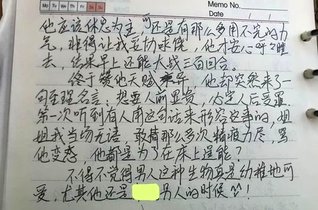 Memo No.
Date
他应该休息为主，可还是有那么多用不完的力
气，非得让我去切水练，他才安心呼呼睡
去，结果早上还能大战三百回合。
终于赞他天赋异
他却突然来了一
句至理名言：想要人前显贵，必定人后受罪。
第一次听到有人用这句话来形容这事的，姐
姐我当场无语，敢情那么多次精疲力尽，累
他变态，他都是为了在床上逞能？
不得不觉得男人这种生物真是幼稚地可
爱，尤其他还是
男人的时候